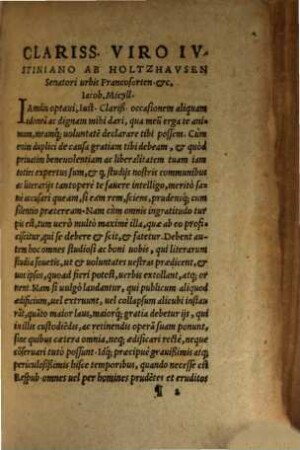 CLARISS. VIRO IV-
STINIANO AB HOLTZHAVSEN
Senatori urbis Francoforten. &c.
Iacob. Micyll.
IAmdiu optaui, Iust. Clariss. occasionem aliquam
idoneã ac dignam mihi dari, qua meũ erga te ani-
mum, meamq́; uoluntatẽ declarare tibi possem. Cùm
enim duplici de causa gratiam tibi debeam, & quòd
priuatim beneuolentiam ac liberalitatem tuam iam
antea expertus sum, & q studijs nostris communibus
ac literarijs tantopere te fauere intelligo, meritò sa-
nè accusari queam, si eam rem, sciens, prudensq́; cum
silentio præteream. Nam cùm omnis ingratitudo tur
pis est, tum uerò multò maximè illa, quæ ab eo profi-
ciscitur, qui se debere & scit, & fatetur. Debent au-
tem hoc omnes studiosi ac boni uobis, qui literarum
studia fouetis, ut & uoluntates uestras prædicent, &
uos ipsos, quoad fieri potest, uerbis extollant, atq; or-
nent. Nam si uulgò laudantur, qui publicum aliquod
ædificium, uel extruunt, uel collapsum alicubi instau-
rãt, quãto maior laus, maiorq́; gratia debetur ijs, qui
in illis custodiẽdis, ac retinendis operã suam ponunt,
sine quibus cætera omnia, neq; ædificari rectè, neque
cõseruari tutò possunt. Idq́; præcipuè grauissimis atq;
periculosissimis hisce temporibus, quando necesse est
Rempub. omnes uel per homines prudẽtes et eruditos
¶ 2